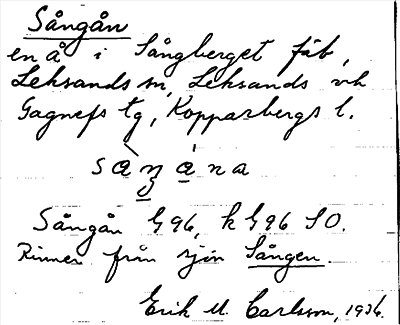 Sångån
en å i Sångberget fäb,
Leksands sn, Leksands och
Gagnefs tg, Kopparbergs l.
sàŋána
Sångån G96, k G96 SO.
Rinner från sjön Sången.
Erik M. Carlsson, 1936.